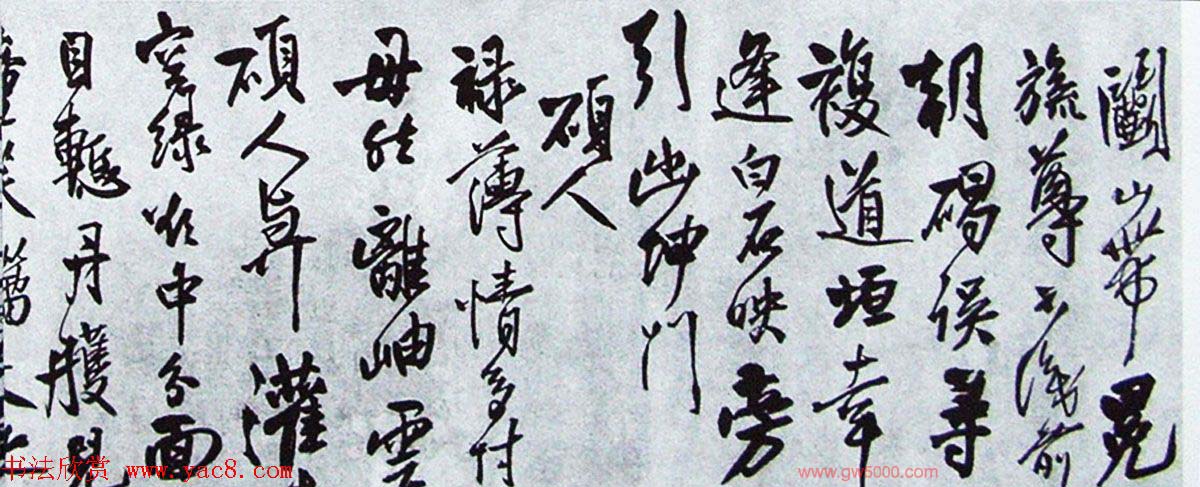 山帶晃
旒尊淺前
朝碣誤尋
複道垣幸
逢白石映旁
引出坤門
碩人
祿薄情多付
毋能離岫雲
碩人弄灌
綠中分面
目慙丹雘
书法欣赏 www.yac8.com
www.gw5000.com